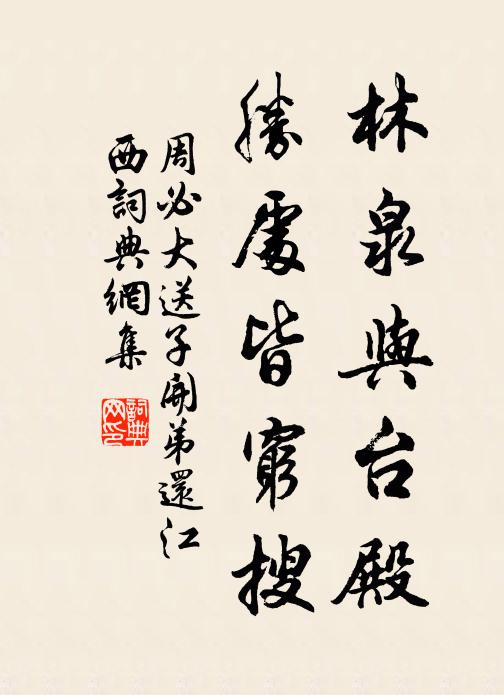 林泉與台殿
勝處皆窮搜
周必大送子開弟還江
西詞典網集
詞典
网印